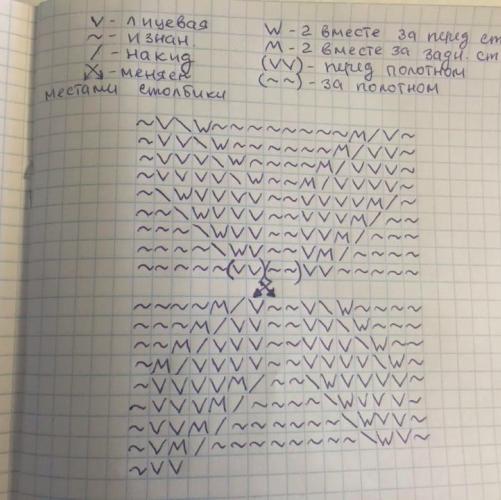 V - лицевая
~ - изнан.
/ - накид
- меняем
местами столбики
W - 2 вместе за перед ст
M - 2 вместе за задн. ст
(VV) - перед полотном
(~~) - за полотном
~V\W~~~~~~~~M/V~
~VV\W~~~~~~M/VV~
~VVV\W~~~~M/VVV~
~VVVV\W~~M/VVVV~
~\WVVVV~~VVVVM/~
~~\WVVV~~VVVM/~~
~~~\WVV~~VVM/~~~
~~~~\WV~~VM/~~~~
~~~~~(VV)(~~)VV~~~~~
~~~~M/V~~V\W~~~~
~~~M/VV~~VV\W~~~
~~M/VVV~~VVV\W~~
~M/VVVV~~VVVV\W~
~VVVVM/~~\WVVVV~
~VVVM/~~~~\WVVV~
~VVM/~~~~~~\WVV~
~VM/~~~~~~~~\WV~
~VV